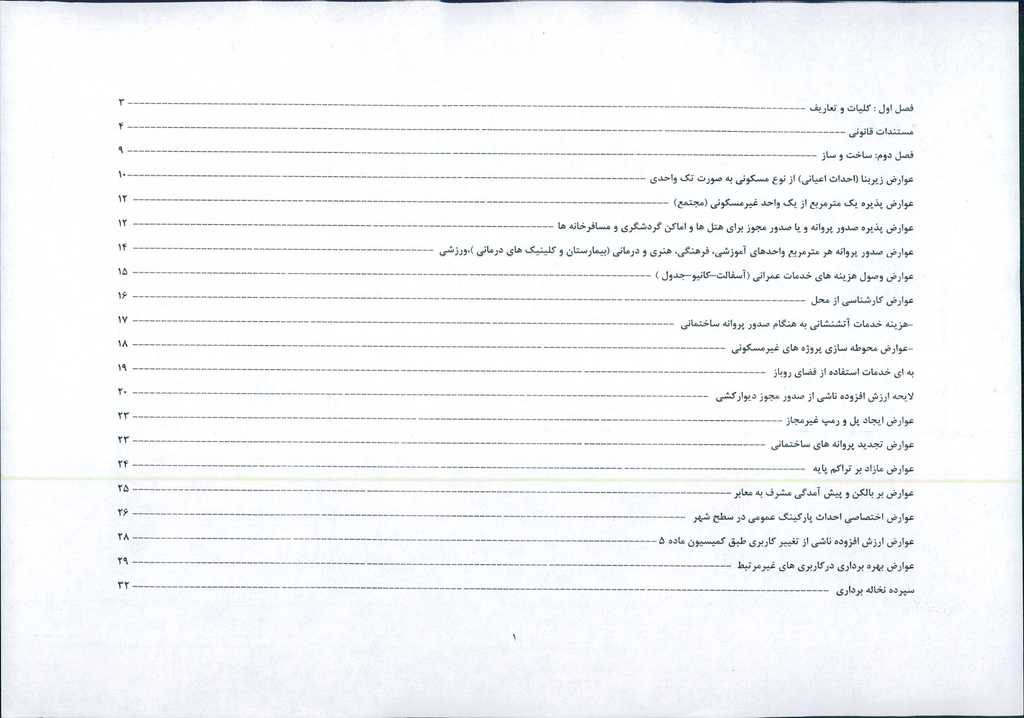 فصل اول : کلیات و تعاریف ---------- ۳
مستندات قانونی ---------- ۴
فصل دوم: ساخت و ساز ---------- ۹
عوارض زیربنا (احداث اعیانی) از نوع مسکونی به صورت تک واحدی ---------- ۱۰
عوارض پذیره یک مترمربع از یک واحد غیرمسکونی (مجتمع) ---------- ۱۲
عوارض پذیره صدور پروانه و یا صدور مجوز برای هتل ها و اماکن گردشگری و مسافرخانه ها ---------- ۱۲
عوارض صدور پروانه هر مترمربع واحدهای آموزشی، فرهنگی، هنری و درمانی (بیمارستان و کلینیک های درمانی )،ورزشی ---------- ۱۴
عوارض وصول هزینه های خدمات عمرانی (آسفالت-کانیو-جدول ) ---------- ۱۵
عوارض کارشناسی از محل ---------- ۱۶
-هزینه خدمات آتشنشانی به هنگام صدور پروانه ساختمانی ---------- ۱۷
-عوارض محوطه سازی پروژه های غیرمسکونی ---------- ۱۸
به ای خدمات استفاده از فضای روباز ---------- ۱۹
لایحه ارزش افزوده ناشی از صدور مجوز دیوارکشی ---------- ۲۰
عوارض ایجاد پل و رمپ غیرمجاز ---------- ۲۳
عوارض تجدید پروانه های ساختمانی ---------- ۲۳
عوارض مازاد بر تراکم پایه ---------- ۲۴
عوارض بر بالکن و پیش آمدگی مشرف به معابر ---------- ۲۵
عوارض اختصاصی احداث پارکینگ عمومی در سطح شهر ---------- ۲۶
عوارض ارزش افزوده ناشی از تغییر کاربری طبق کمیسیون ماده ۵ ---------- ۲۸
عوارض بهره برداری درکاربری های غیرمرتبط ---------- ۲۹
سپرده نخاله برداری ---------- ۳۲
۱